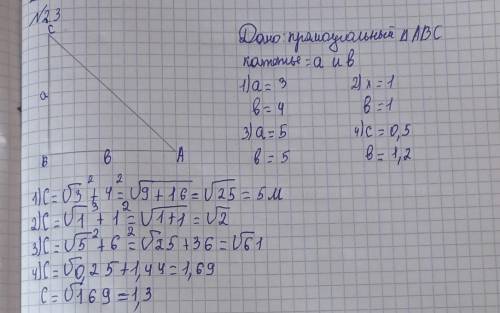 №23
C
a
B в A
Дано: прямоугольный △ABC
катеты = a и в
1) a = 3 2) a = 1
в = 4 в = 1
3) a = 5 4) c = 0,5
в = 5 в = 1,2
1) C = √3² + 4² = √9 + 16 = √25 = 5 м
2) C = √1² + 1² = √1+1 = √2
3) C = √5² + 6² = √25 + 36 = √61
4) C = √0,25 + 1,44 = 1,69
C = √169 = 1,3